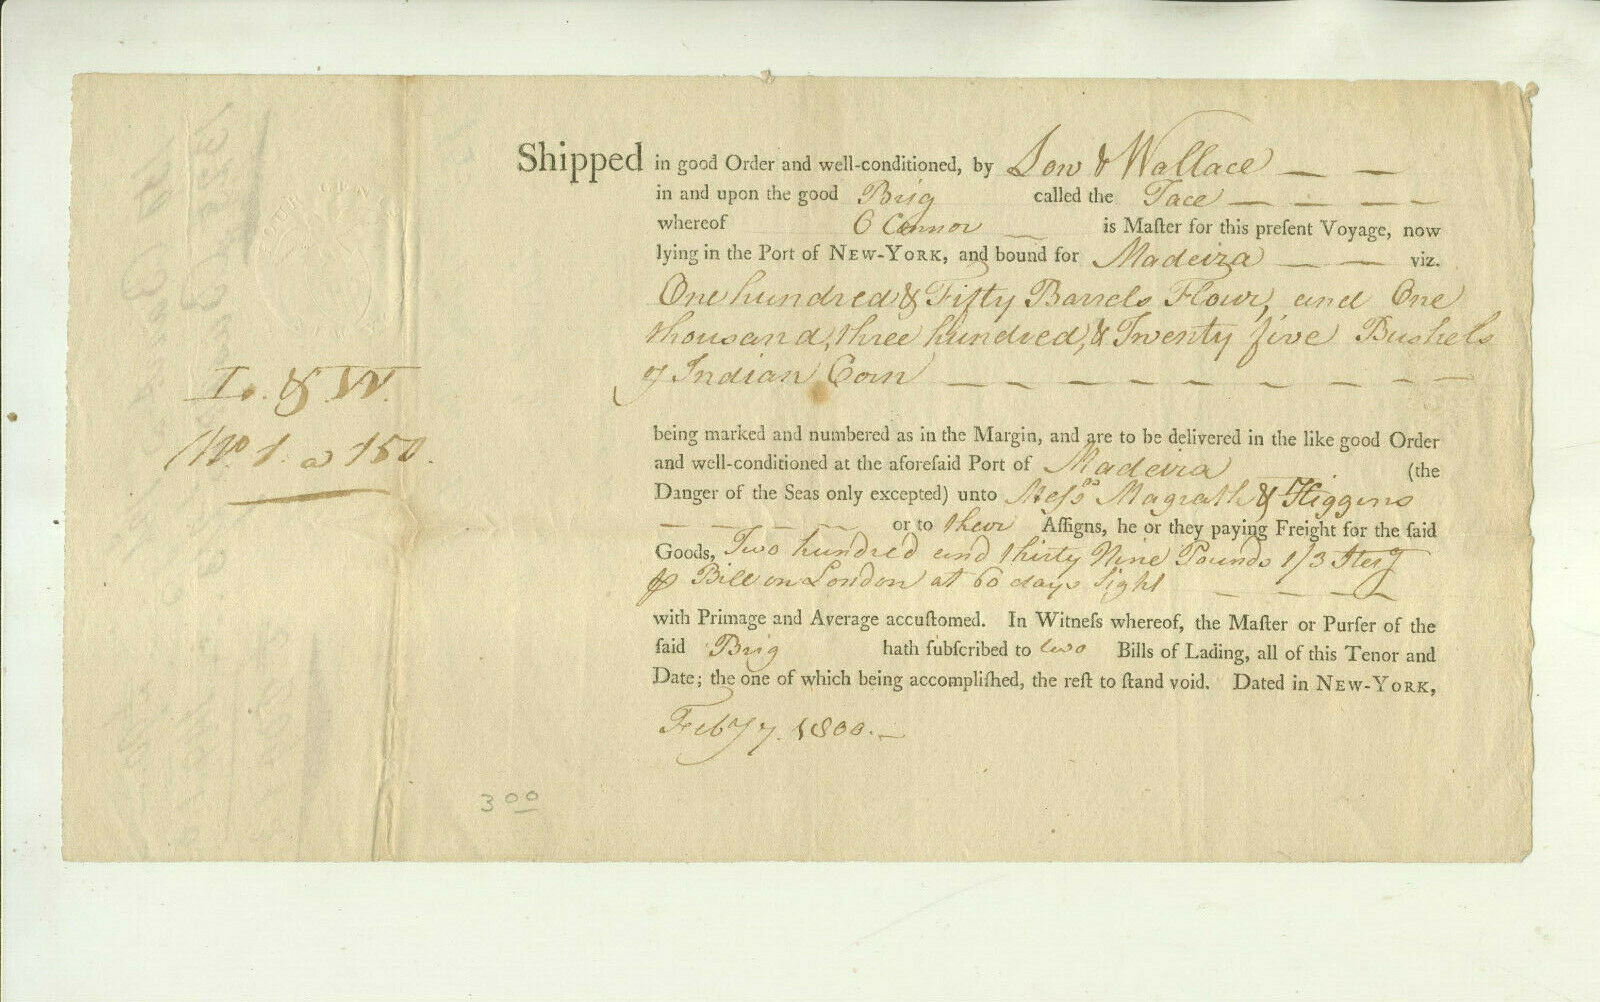 Shipped in good Order and well-conditioned, by Low & Wallace — —
in and upon the good Brig called the Tace — — — —
whereof O Connor — is Maſter for this preſent Voyage, now
lying in the Port of NEW-YORK, and bound for Madeira — — viz.
One hundred & Fifty Barrels Flour, and One
thousand, three hundred, & Twenty five Bushels
of Indian Corn — — — — — — — — —
L. & W.
No. 1. a 150.
being marked and numbered as in the Margin, and are to be delivered in the like good Order
and well-conditioned at the aforeſaid Port of Madeira (the
Danger of the Seas only excepted) unto Meſsrs Magrath & Higgins
— — — — or to their Aſſigns, he or they paying Freight for the ſaid
Goods, Two hundred and thirty Nine Pounds 1/3 Sterg
Bill on London at 60 days Sight — — — —
with Primage and Average accuſtomed. In Witneſs whereof, the Maſter or Purſer of the
ſaid Brig hath ſubſcribed to two Bills of Lading, all of this Tenor and
Date; the one of which being accompliſhed, the reſt to ſtand void. Dated in NEW-YORK,
Feby 7. 1800. —
3 00